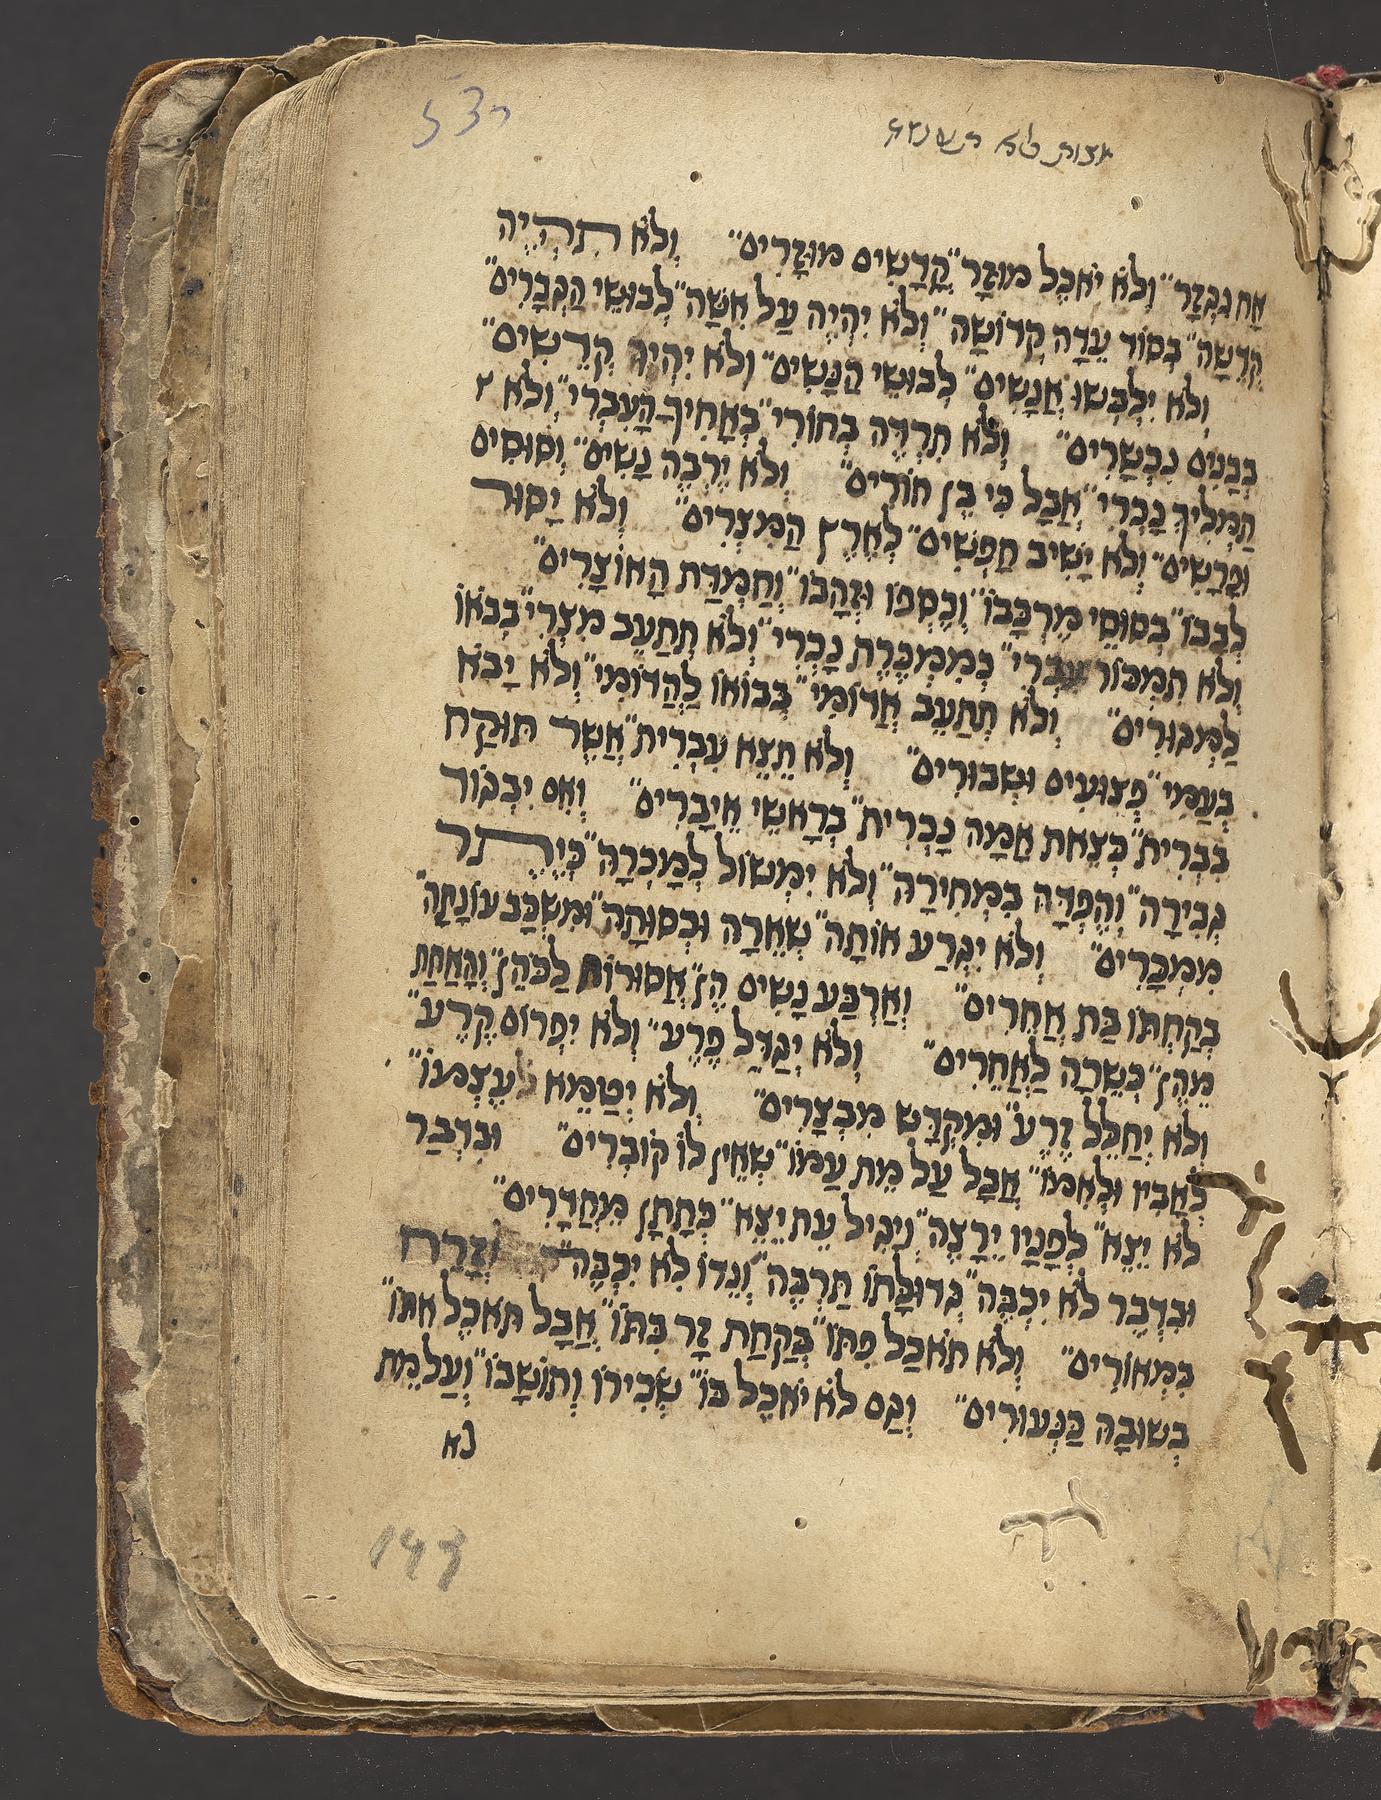 אצות לא תעשה
אח נגזר״ ולא יאכל מוזר״ קדשים מוזרים״ ולא תהיה
קדשה״ בסוד עדה קדושה״ ולא יהיה על אשה״ לבושי הגברים״
ולא ילבשו אנשים״ לבושי הנשים״ ולא יהיה קדשים״
בבנים נכשרים״ ולא תרדה בחורי״ באחיך העברי״ ולא
תמליך נכרי״ אבל כי בן חורים״ ולא ירבה נשים״ וסוסים
ופרשים״ ולא ישיב חפשים״ לארץ המצרים״ ולא יסור
לבבו״ בסוסי מרכבו״ וכספו וזהבו״ וחמדת האוצרים״
ולא תמכור עברי״ כממכרת נכרי״ ולא תתעב מצרי״ בבאו
למגורים״ ולא תתעב אדומי״ בבואו להדומי״ ולא יבא
בעמי״ פצועים ושבורים״ ולא תצא עברית״ אשר תוקח
בברית״ כצאת אמה נכרית״ בראשי איברים״ ואם יבקור
גבירה״ והפדה במחירה״ ולא ימשול למכרה״ כיתר
ממכרים״ ולא יגרע אותה״ שארה וכסותה״ ומשכב עונתה״
בקחתו בת אחרים״ וארבע נשים הן״ אסורות לכהן״ והאחת
מהן״ כשרה לאחרים״ ולא יגדל פרע״ ולא יפרום קרע״
ולא יחלל זרע״ ומקדש מבצרים״ ולא יטמא לעצמו״
לאביו ולאמו״ אבל על מת עמו״ שאין לו קוברים״ ובדבר
לא יצא״ לפניו ירצה״ ויגיל עת יצא״ כחתן מחדרים״
ובדבר לא יכבה״ גדולתו תרבה״ ונדו לא יכבה״ וזרח
כמאורים״ ולא תאכל פתו״ בקחת זר בתו״ אבל תאכל אתו״
בשובה כנעורים״ וגם לא יאכל בו״ שכירו ותושבו״ ועל מת
לא
143